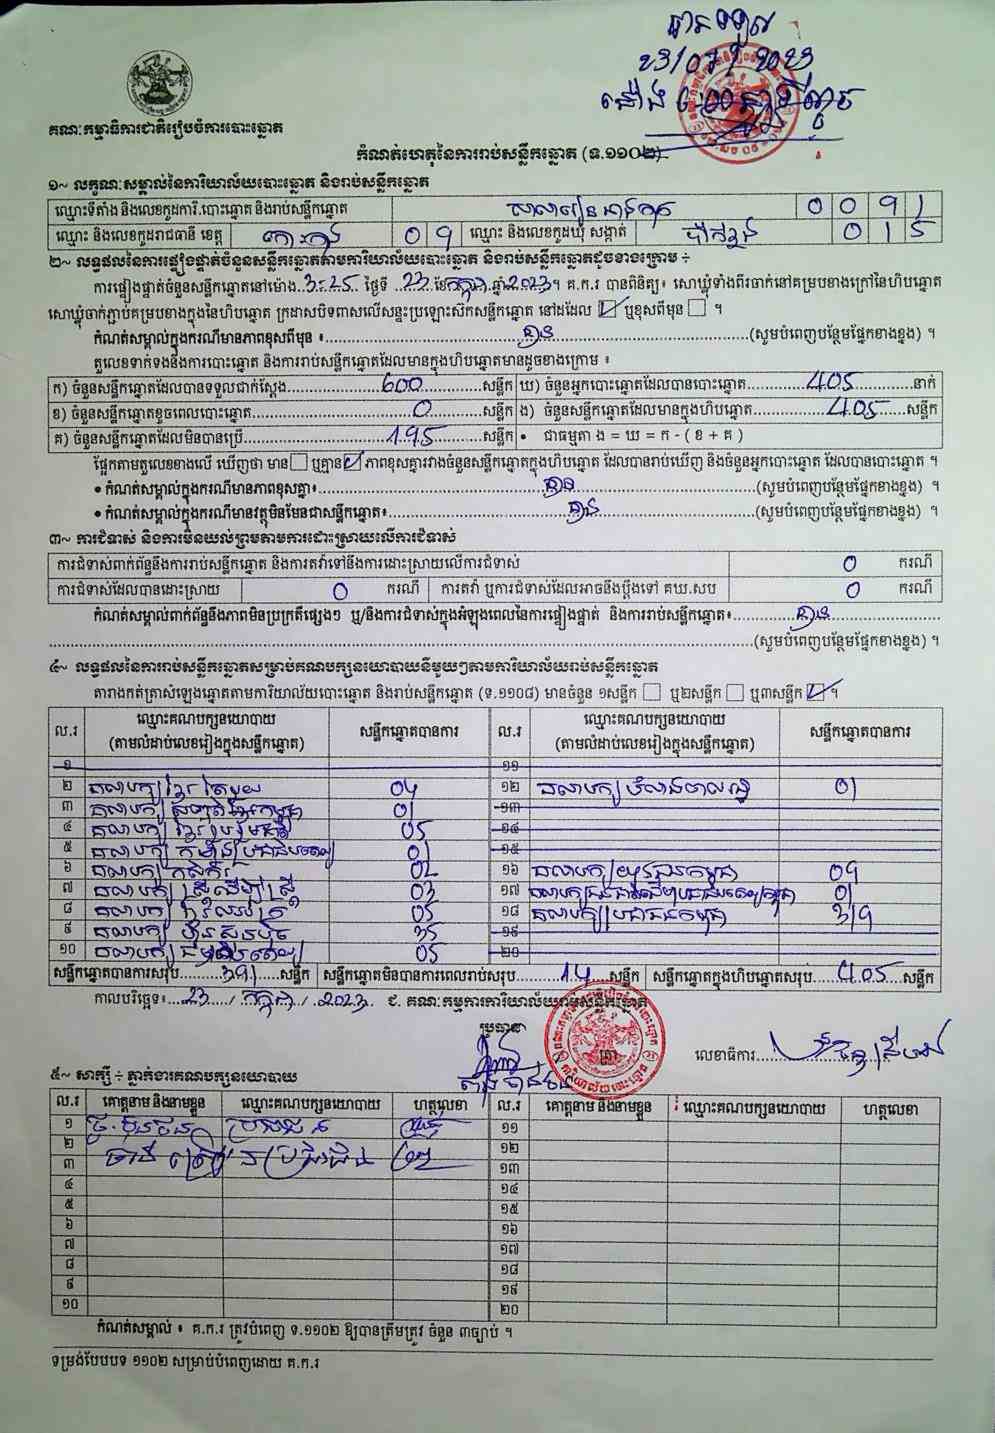 បានឃើញ
23/07/2023
គណៈកម្មាធិការជាតិរៀបចំការបោះឆ្នោត
កំណត់ហេតុនៃការរាប់សន្លឹកឆ្នោត (ទ.១១០២)
១~ លក្ខណៈសម្គាល់នៃការិយាល័យបោះឆ្នោត និងរាប់សន្លឹកឆ្នោត
ឈ្មោះទីតាំង និងលេខកូដការិ.បោះឆ្នោត និងរាប់សន្លឹកឆ្នោត សាលារៀន 0091
ឈ្មោះ និងលេខកូដរាជធានី ខេត្ត កោះកុង 09 ឈ្មោះ និងលេខកូដឃុំ សង្កាត់ 015
២~ លទ្ធផលនៃការផ្ទៀងផ្ទាត់ចំនួនសន្លឹកឆ្នោតតាមការិយាល័យបោះឆ្នោត និងរាប់សន្លឹកឆ្នោតដូចខាងក្រោម ÷
ការផ្ទៀងផ្ទាត់ចំនួនសន្លឹកឆ្នោតនៅម៉ោង 3:25 ថ្ងៃទី 23 ខែ កក្កដា ឆ្នាំ 2023។ គ.ក.រ បានពិនិត្យ៖ សោឃ្លុំទាំងពីរចាក់នៅគម្របខាងក្រៅនៃហិបឆ្នោត
សោឃ្លុំចាក់ភ្ជាប់គម្របខាងក្នុងនៃហិបឆ្នោត ក្រដាសបិទពាសលើសន្ទះប្រឡោះស៊កសន្លឹកឆ្នោត នៅដដែល ☑ ឬខុសពីមុន ☐ ។
កំណត់សម្គាល់ក្នុងករណីមានភាពខុសពីមុន ៖ គ្មាន (សូមបំពេញបន្ថែមផ្នែកខាងខ្នង) ។
តួលេខទាក់ទងនឹងការបោះឆ្នោត និងការរាប់សន្លឹកឆ្នោតដែលមានក្នុងហិបឆ្នោតមានដូចខាងក្រោម ៖
ក) ចំនួនសន្លឹកឆ្នោតដែលបានទទួលជាក់ស្តែង 600 សន្លឹក ឃ) ចំនួនអ្នកបោះឆ្នោតដែលបានបោះឆ្នោត 405 នាក់
ខ) ចំនួនសន្លឹកឆ្នោតខូចពេលបោះឆ្នោត 0 សន្លឹក ង) ចំនួនសន្លឹកឆ្នោតដែលមានក្នុងហិបឆ្នោត 405 សន្លឹក
គ) ចំនួនសន្លឹកឆ្នោតដែលមិនបានប្រើ 195 សន្លឹក • ជាធម្មតា ង = ឃ = ក - ( ខ + គ )
ផ្អែកតាមតួលេខខាងលើ ឃើញថា មាន ☐ ឬគ្មាន ☑ ភាពខុសគ្នារវាងចំនួនសន្លឹកឆ្នោតក្នុងហិបឆ្នោត ដែលបានរាប់ឃើញ និងចំនួនអ្នកបោះឆ្នោត ដែលបានបោះឆ្នោត ។
• កំណត់សម្គាល់ក្នុងករណីមានភាពខុសគ្នា៖ គ្មាន (សូមបំពេញបន្ថែមផ្នែកខាងខ្នង) ។
• កំណត់សម្គាល់ក្នុងករណីមានវត្ថុមិនមែនជាសន្លឹកឆ្នោត៖ គ្មាន (សូមបំពេញបន្ថែមផ្នែកខាងខ្នង) ។
៣~ ការជំទាស់ និងការមិនយល់ព្រមតាមការដោះស្រាយលើការជំទាស់
ការជំទាស់ពាក់ព័ន្ធនឹងការរាប់សន្លឹកឆ្នោត និងការតវ៉ាទៅនឹងការដោះស្រាយលើការជំទាស់ 0 ករណី
ការជំទាស់ដែលបានដោះស្រាយ 0 ករណី ការតវ៉ា ឬការជំទាស់ដែលអាចនឹងប្តឹងទៅ គឃ.សប 0 ករណី
កំណត់សម្គាល់ពាក់ព័ន្ធនឹងភាពមិនប្រក្រតីផ្សេងៗ ឬ/និងការជំទាស់ក្នុងអំឡុងពេលនៃការផ្ទៀងផ្ទាត់ និងការរាប់សន្លឹកឆ្នោត៖ គ្មាន
(សូមបំពេញបន្ថែមផ្នែកខាងខ្នង) ។
៤~ លទ្ធផលនៃការរាប់សន្លឹកឆ្នោតសម្រាប់គណបក្សនយោបាយនីមួយៗតាមការិយាល័យរាប់សន្លឹកឆ្នោត
តារាងកត់ត្រាសំឡេងឆ្នោតតាមការិយាល័យបោះឆ្នោត និងរាប់សន្លឹកឆ្នោត (ទ.១១០៨) មានចំនួន ១សន្លឹក ☐ ឬ២សន្លឹក ☐ ឬ៣សន្លឹក ☑ ។
ល.រ ឈ្មោះគណបក្សនយោបាយ (តាមលំដាប់លេខរៀងក្នុងសន្លឹកឆ្នោត) សន្លឹកឆ្នោតបានការ ល.រ ឈ្មោះគណបក្សនយោបាយ (តាមលំដាប់លេខរៀងក្នុងសន្លឹកឆ្នោត) សន្លឹកឆ្នោតបានការ
១ ១១
២ គណបក្ស ខ្មែរតែមួយ 04 ១២ គណបក្ស 01
៣ គណបក្ស 01 ១៣
៤ គណបក្ស ខ្មែររួបរួមជាតិ 05 ១៤
៥ គណបក្ស កម្លាំងប្រជាធិបតេយ្យ 01 ១៥
៦ គណបក្ស កសិករ 02 ១៦ គណបក្ស 09
៧ គណបក្ស ស្ត្រីដើម្បីស្ត្រី 03 ១៧ គណបក្ស 01
៨ គណបក្ស 05 ១៨ គណបក្សប្រជាជនកម្ពុជា 319
៩ គណបក្ស ហ៊្វុនស៊ិនប៉ិច 35 ១៩
១០ គណបក្ស 05 ២០
សន្លឹកឆ្នោតបានការសរុប 391 សន្លឹក សន្លឹកឆ្នោតមិនបានការពេលរាប់សរុប 14 សន្លឹក សន្លឹកឆ្នោតក្នុងហិបឆ្នោតសរុប 405 សន្លឹក
កាលបរិច្ឆេទ៖ 23 / កក្កដា / 2023 ជ. គណៈកម្មការការិយាល័យរាប់សន្លឹកឆ្នោត
ប្រធាន
លេខាធិការ
៥~ សាក្សី ÷ ភ្នាក់ងារគណបក្សនយោបាយ
ល.រ គោត្តនាម និងនាមខ្លួន ឈ្មោះគណបក្សនយោបាយ ហត្ថលេខា ល.រ គោត្តនាម និងនាមខ្លួន ឈ្មោះគណបក្សនយោបាយ ហត្ថលេខា
១ ១១
២ ១២
៣ ១៣
៤ ១៤
៥ ១៥
៦ ១៦
៧ ១៧
៨ ១៨
៩ ១៩
១០ ២០
កំណត់សម្គាល់ ៖ គ.ក.រ ត្រូវបំពេញ ទ.១១០២ ឱ្យបានត្រឹមត្រូវ ចំនួន ៣ច្បាប់ ។
ទម្រង់បែបបទ ១១០២ សម្រាប់បំពេញដោយ គ.ក.រ